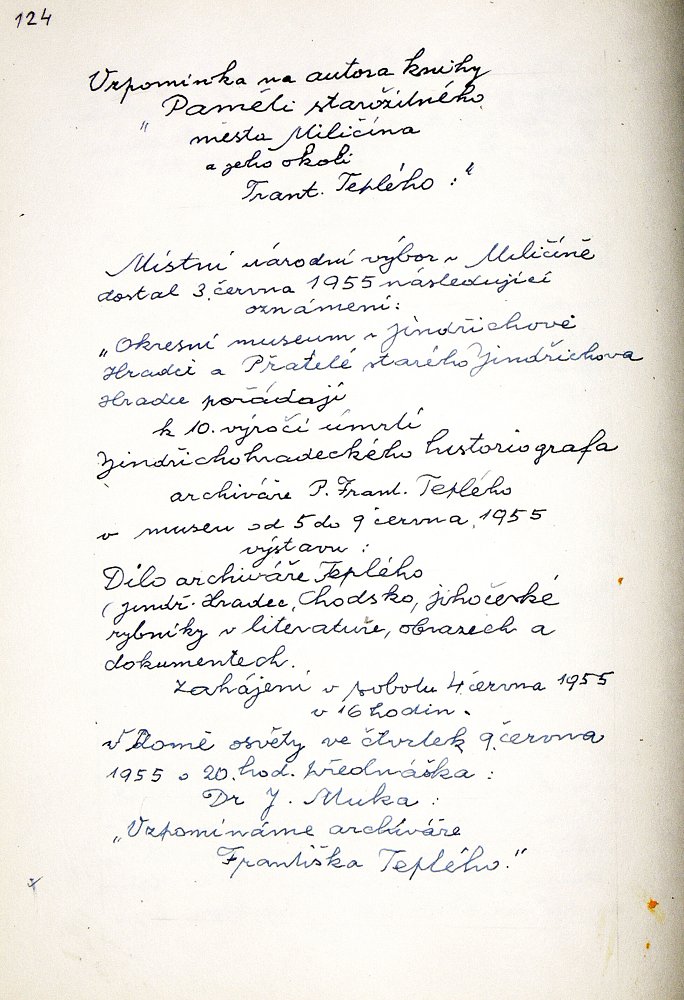 124
Vzpomínka na autora knihy
„ Paměti starožitného
města Miličína
a jeho okolí
Frant. Teplého : "
Místní národní výbor v Miličíně
dostal 3. června 1955 následující
oznámení:
„Okresní museum v Jindřichově
Hradci a Přatelé starého Jindřichova
Hradce pořádají
k 10. výročí úmrtí
Jindřichohradeckého historiografa
archiváře P. Frant. Teplého
v museu od 5 do 9 června 1955
výstavu :
Dílo archiváře Teplého
(Jindř. Hradec, Chodsko, jihočeské
rybníky v literatuře, obrazech a
dokumentech.
Zahájení v sobotu 4 června 1955
v 16 hodin.
V Domě osvěty ve čtvrtek 9. června
1955 o 20. hod. přednáška :
Dr J. Muka :
„Vzpomínáme archiváře
Františka Teplého."